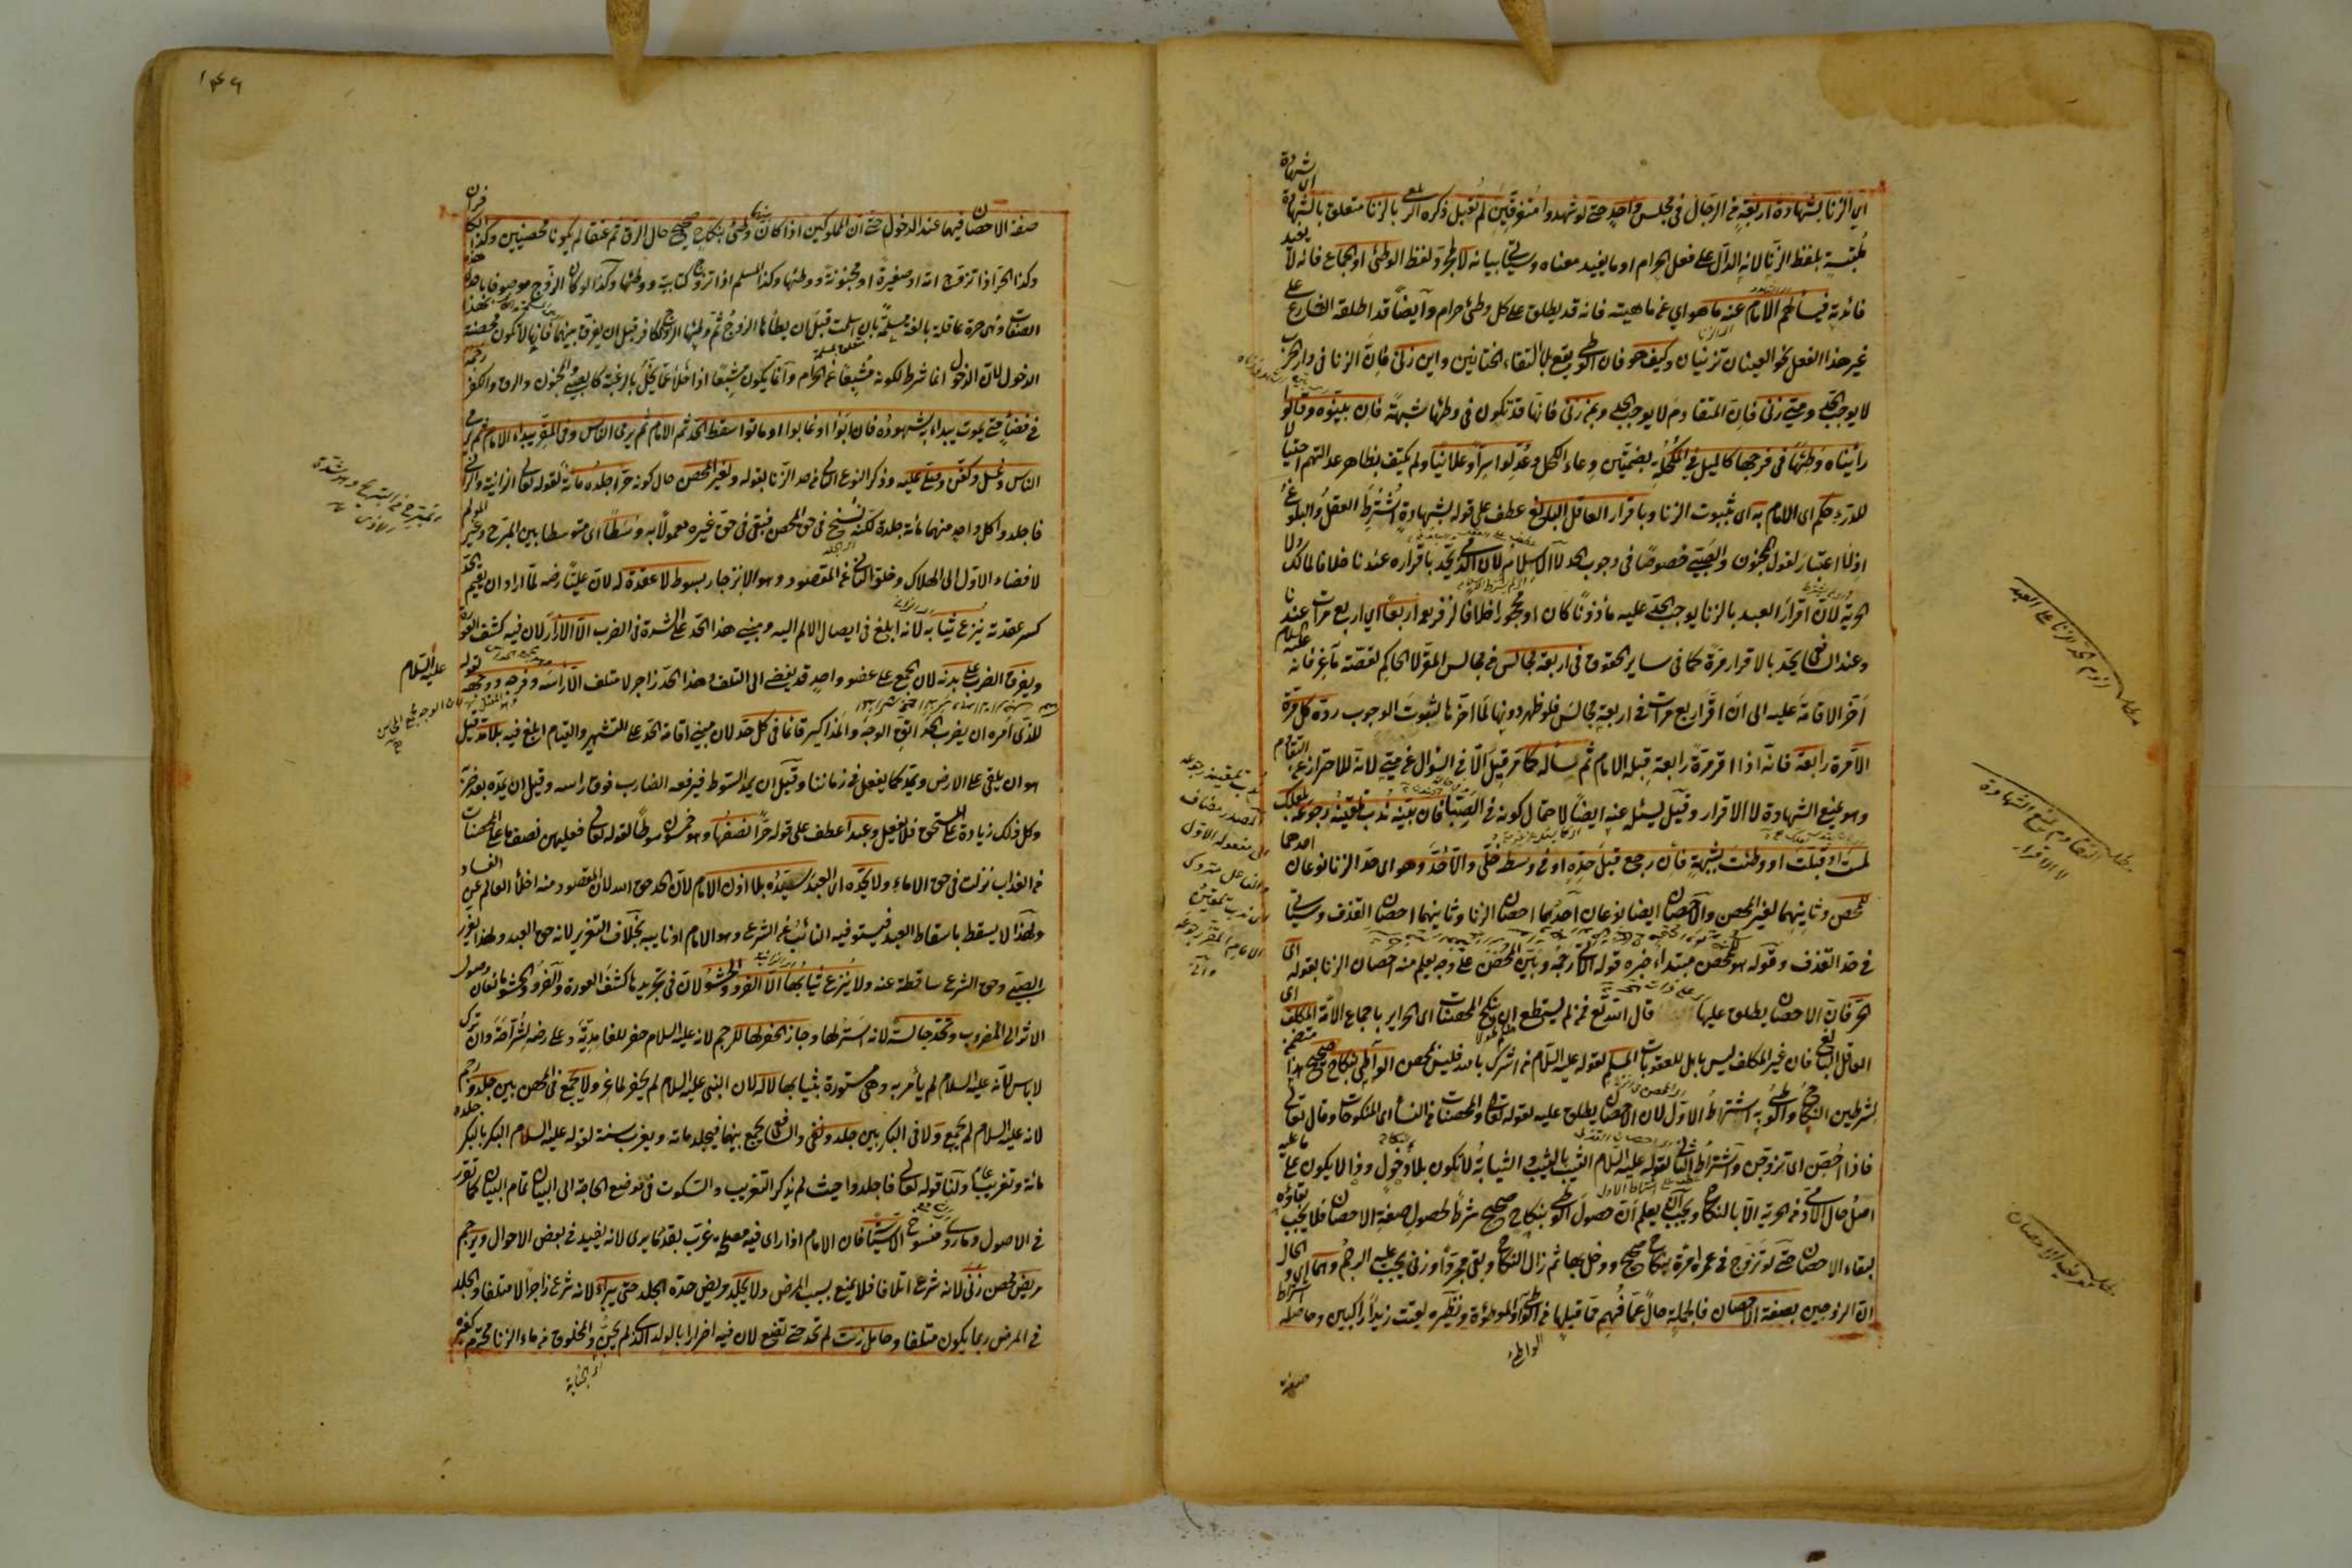 اى الزنا بشهادة اربعة من الرجال فى مجلس واحد حتى لو شهدوا متفرقين لم تقبل ذكره بالزنا متعلق بالشهادة
ملتبسة بلفظ الزنا لانه الدال على فعل الحرام او ما يفيد معناه وسيأتى بيانه لا بمجرد لفظ الوطئ او الجماع فانه لا يفيد
فائدته فيسألهم الامام عنه ما هو اى عن ماهيته فانه قد يطلق على كل وطئ حرام وايضا قد اطلقه الشارع على
غير هذا الفعل نحو العينان تزنيان وكيف هو فان الوطى يقع بالتقاء الختانين واين زنى فان الزنا فى دار الحرب
لا يوجب الحد ومتى زنى فان المتقادم لا يوجب الحد وبمن زنى فانها قد تكون فى وطئها شبهة فان بينوه وقالوا
رأيناه وطئها فى فرجها كالميل فى المكحلة بضمتين وعاء الكحل وعدلوا سرا وعلانيا ولم يكتف بظاهر عدالتهم احتيالا
للدرء حكم اى الامام به اى بثبوت الزنا وباقرار العاقل البالغ عطف على قوله بشهادة اشترط العقل والبلوغ
اذ لا اعتبار لقول المجنون والصبى خصوصا فى وجوب الحد لا الاسلام لان الذمى يحد باقراره عندنا خلافا لمالك ولا
الحرية لان اقرار العبد بالزنا يوجب الحد عليه مأذونا كان او محجورا خلافا لزفر اربعا اى اربع مرات عندنا
وعند الشافعى يحد بالاقرار مرة كما فى ساير الحقوق فى اربعة مجالس من مجالس المقر لا الحاكم لقصة ماعز فانه عليه السلام
اخر الاقامة عليه الى ان اقر اربع مرات فى اربعة مجالس فلو ظهر دونها لما اخرها لثبوت الوجوب رده كل مرة
الا مرة رابعة فانه اذا اقر مرة رابعة قبله الامام ثم سأله كما مر قيل الا فى السؤال عن متى لانه للاحتراز عن التقادم
وهو يمنع الشهادة لا الاقرار وقيل يسئله عنه ايضا لاحتمال كونه فى الصبا فان بينه ندب تلقينه رجوعه بلعلك
لمست او قبلت او وطئت بشبهة فان رجع قبل حده او فى وسطه خلى والا حد وهو اى حد الزنا نوعان احدهما
للمحصن وثانيهما لغير المحصن والاحصان ايضا نوعان احدهما احصان الزنا وثانيهما احصان القذف وسيأتى
فى حد القذف وقوله هو للمحصن مبتداء خبره قوله الآتى رجمه وبين المحصن على وجه يعلم منه احصان الزنا بقوله اى
الحر فان الاحصان يطلق عليها قال الله تع فمن لم يستطع ان ينكح المحصنات اى الحراير باجماع الامة المكلف اى
العاقل البالغ فان غير المكلف ليس باهل للعقوبات المسلم لقوله عليه السلام من اشرك بالله فليس بمحصن الواطى بنكاح صحيح هذا متضمن
لشرطين النكاح والوطى به اشتراط الاول لان الاحصان يطلق عليه لقوله تعالى والمحصنات من النساء اى المنكوحات وقال تعالى
فاذا احصن اى تزوجن واشتراط الثانى لقوله عليه السلام الثيب بالثيب والثيابة لا تكون بلا دخول وذا لا يكون على ما عليه
اصل حال الآدمى من الحرية الا بالنكاح ويجب ان يعلم ان حصول الوطى بنكاح صحيح شرط لحصول صفة الاحصان فلا يجب بقاؤه
لبقاء الاحصان حتى لو تزوج فى عمره مرة بنكاح صحيح ودخل بها ثم زال النكاح وبقى مجردا وزنى يجب عليه الرجم وهما اى والحال
ان الزوجين بصفة الاحصان فالجملة حال عما فهم مما قبلها من الواطئ والموطوءة ونظيره لقيت زيدا راكبين وحاصله اشتراط
صفة
مطلب لزوم الحد الزنا على العبد
مطلب التقادم يمنع الشهادة لا الاقرار
مطلب تعريف الاحصان
١٤٦
صفة الاحصان فيهما عند الدخول حتى ان المملوكين اذا كان بينهما وطئ بنكاح صحيح حال الرق ثم عتقا لم يكونا محصنين وكذا الكافران
وكذا الحر اذا تزوج امة او صغيرة او مجنونة ووطئها وكذا المسلم اذا تزوج كتابية ووطئها وكذا لو كان الزوج موصوفا باحدى هذه
الصفات وهى حرة عاقلة بالغة مسلمة بان اسلمت قبل ان يطأها الزوج ثم وطئها الزوج الكافر قبل ان يفرق بينهما فانها لا تكون محصنة بهذا
الدخول لان الدخول انما شرط لكونه مشبعا عن الحرام وانما يكون مشبعا اذا خلا عما يخل بالرغبة كالصبى والجنون والرق والكفر رجمه
فى فضاء حتى يموت يبدأ به شهوده فان ابوا او غابوا او ماتوا سقط الحد ثم الامام ثم يرمى الناس وفى المقر يبدأ الامام ثم يرمى
الناس وغسل وكفن وصلى عليه وذكر النوع الثانى من حد الزنا بقوله ولغير المحصن حال كونه حرا جلده مائة لقوله تعالى الزانية والزانى
فاجلدوا كل واحد منهما مائة جلدة لكنه نسخ فى حق المحصن فبقى فى حق غيره معمولا به وسطا اى متوسطا بين المبرح وغير المولم
لافضاء الاول الى الهلاك وخلو الثانى عن المقصود وهو الانزجار بسوط لا عقدة له لان عليا رضه لما اراد ان يقيم الحد
كسر عقدته ينزع ثيابه لانه ابلغ فى ايصال الالم اليه ومبنى هذا الحد على الشدة فى الضرب الا الازار لان فيه كشف العورة
ويفرق الضرب على بدنه لان الجمع على عضو واحد قد يفضى الى التلف وهذا الحد زاجر لا متلف الا رأسه وفرجه ووجهه لقوله عليه السلام
للذى امره ان يضرب الحد اتق الوجه والمذاكير قائما فى كل حد لان مبنى اقامة الحد على التشهير والقيام ابلغ فيه بلا مد قيل
هو ان يلقى على الارض ويمد كما يفعل فى زماننا وقيل ان يمد السوط فيرفعه الضارب فوق راسه وقيل ان يمده بعد ضربه
وكل ذلك زيادة على المستحق فلا يفعل وعبدا عطف على قوله حرا نصفها وهو خمسون سوطا لقوله تعالى فعليهن نصف ما على المحصنات
من العذاب نزلت فى حق الاماء ولا يحده اى العبد سيده بلا اذن الامام لان الحد حق الله لان المقصود منه اخلاء العالم عن الفساد
ولهذا لا يسقط باسقاط العبد فيستوفيه النائب عن الشرع وهو الامام او نايبه بخلاف التعزير لانه حق العبد ولهذا يعزر
الصبى وحق الشرع ساقطة عنه ولا ينزع ثيابها الا الفرو والحشو لان فى تجريدها كشف العورة والفرو والحشو مانعان وصول
الاثر الى المضروب وتحد جالسة لانه استر لها وجاز الحفر لها للرجم لانه عليه السلام حفر للغامدية وعلى رضه لشراحة وان ترك
لا باس لانه عليه السلام لم يأمر به وهى مستورة بثيابها لا له لان النبى عليه السلام لم يحفر لماعز ولا يجمع فى المحصن بين جلد ورجم
لانه عليه السلام لم يجمع ولا فى البكر بين جلد ونفى والشافعى يجمع بينهما فيجلد مائة ويغرب سنة لقوله عليه السلام البكر بالبكر جلده
مائة وتغريب عام ولنا قوله تعالى فاجلدوا حيث لم يذكر التغريب والسكوت فى موضع الحاجة الى البيان تمام البيان كما تقرر
فى الاصول وما رواه منسوخ الا سياسة فان الامام اذا راى فيه مصلحة غرب بقدر ما يرى لانه يفيد فى بعض الاحوال ويرجم
مريض محصن زنى لانه شرع اتلافا فلا يمنع بسبب المرض ولا يجلد مريض حده الجلد حتى يبرأ لانه شرع زاجرا لا متلفا والجلد
فى المرض ربما يكون متلفا وحامل زنت لم تحد حتى تضع لان فيه اضرارا بالولد الذى لم يجن والمخلوق من ماء الزنا محترم كغيره